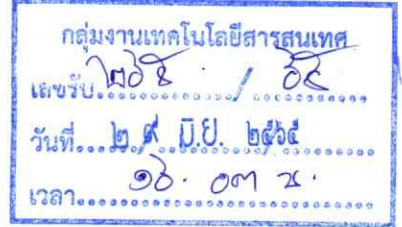 กลุ่มงานเทคโนโลยีสารสนเทศ
เลขรับ ๒๖๕ / ๖๕
วันที่ ๒๙ มิ.ย. ๒๕๖๕
เวลา ๑๖.๐๓ น.